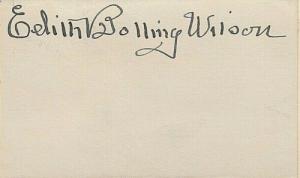 Edith Bolling Wilson